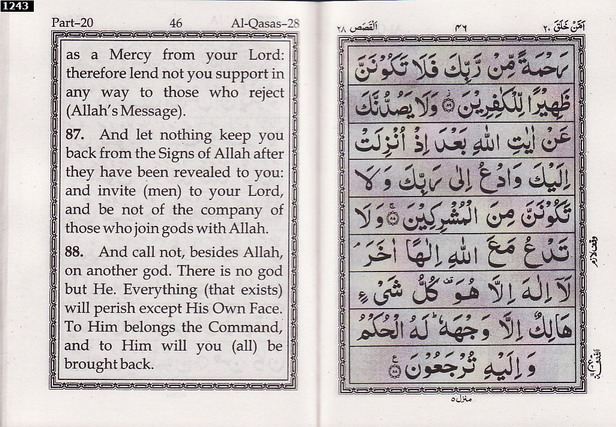 1243
Part-20 46 Al-Qasas-28
as a Mercy from your Lord:
therefore lend not you support in
any way to those who reject
(Allah's Message).
87. And let nothing keep you
back from the Signs of Allah after
they have been revealed to you:
and invite (men) to your Lord,
and be not of the company of
those who join gods with Allah.
88. And call not, besides Allah,
on another god. There is no god
but He. Everything (that exists)
will perish except His Own Face.
To Him belongs the Command,
and to Him will you (all) be
brought back.
اَمَّنْ خَلَقَ ٢٠ ٤٦ اَلْقَصَص ٢٨
رَحْمَةً مِّنْ رَّبِّكَ فَلَا تَكُوْنَنَّ
ظَهِيْرًا لِّلْكٰفِرِيْنَ ۝٨٦ وَلَا يَصُدُّنَّكَ
عَنْ اٰيٰتِ اللّٰهِ بَعْدَ اِذْ اُنْزِلَتْ
اِلَيْكَ وَادْعُ اِلٰى رَبِّكَ وَلَا
تَكُوْنَنَّ مِنَ الْمُشْرِكِيْنَ ۝٨٧ وَلَا
تَدْعُ مَعَ اللّٰهِ اِلٰهًا اٰخَرَ ۘ
لَاۤ اِلٰهَ اِلَّا هُوَ ۫ كُلُّ شَيْءٍ
هَالِكٌ اِلَّا وَجْهَهٗ ؕ لَهُ الْحُكْمُ
وَاِلَيْهِ تُرْجَعُوْنَ ۝٨٨
وقف لازم
منزل ٥